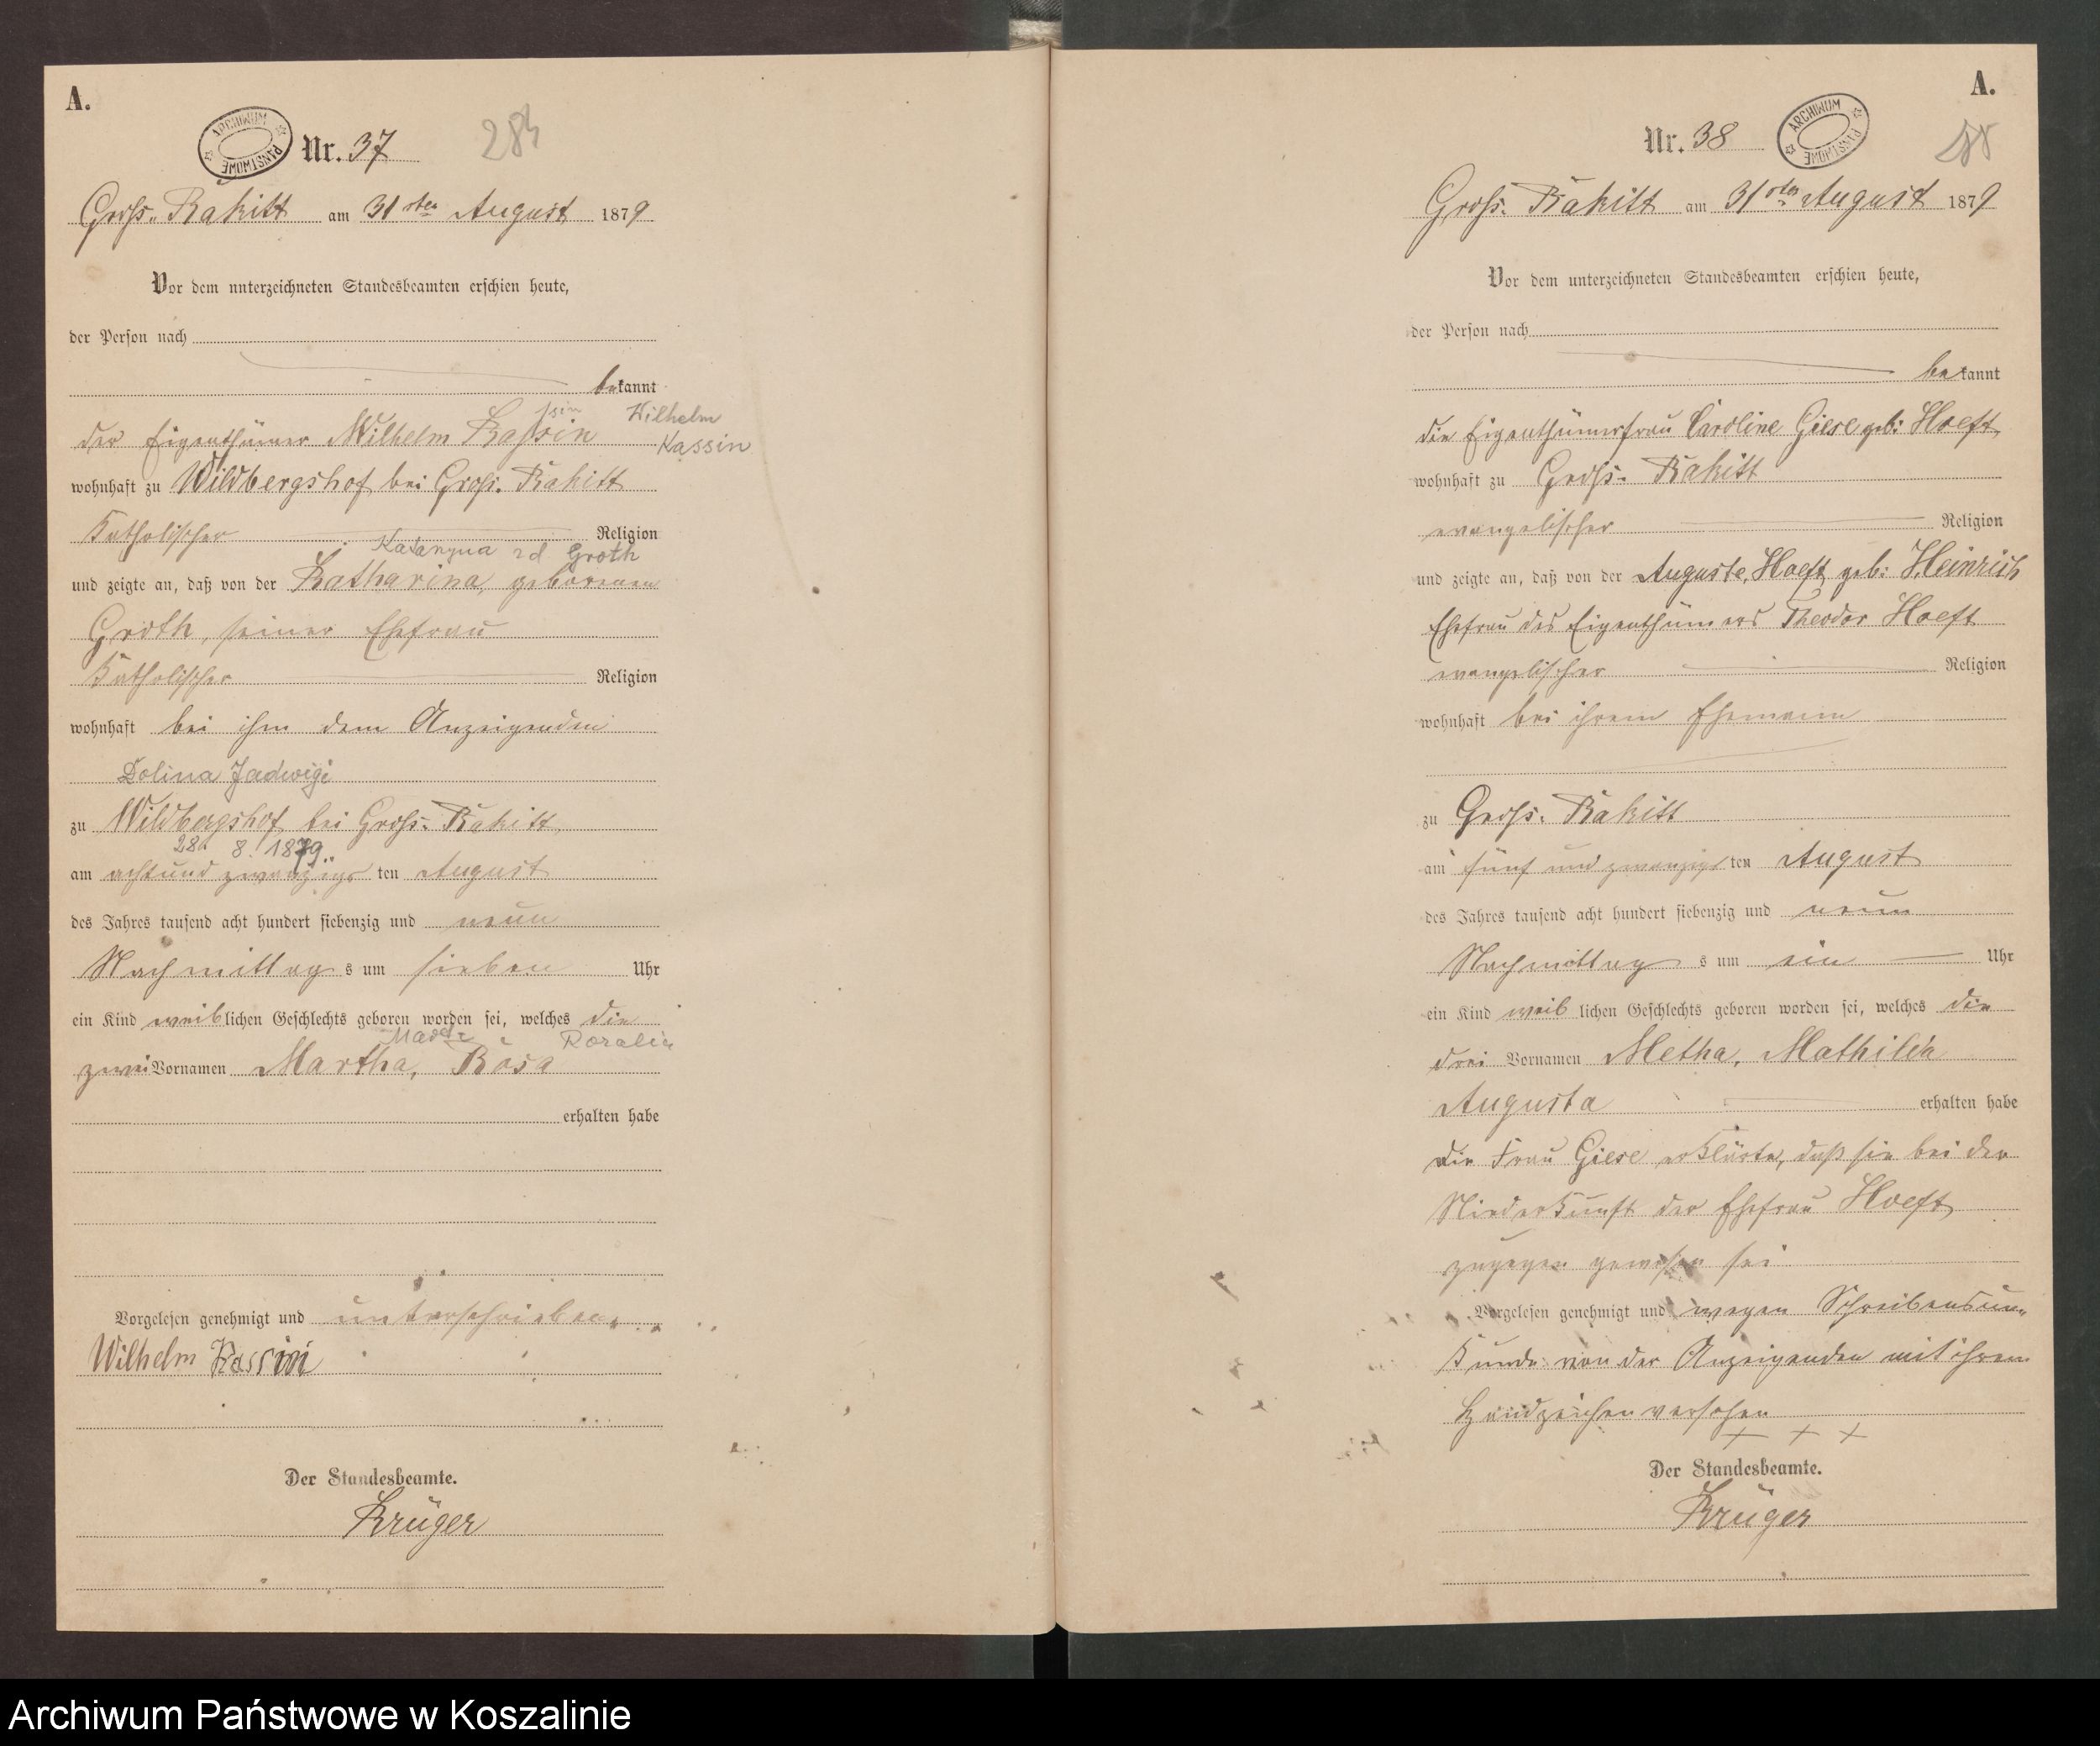 A.
ARCHIWUM PAŃSTWOWE
Nr. 37
284
Gross-Rakitt am 31sten August 1879
Vor dem unterzeichneten Standesbeamten erschien heute,
der Person nach
bekannt
Wilhelm
der Eigenthümer Wilhelm Kassin
Kassin
wohnhaft zu Wildbergshof bei Gross-Rakitt
Katholischer Religion
Groth
und zeigte an, daß von der Katharina, geborenen
Groth, seiner Ehefrau
Katholischer Religion
wohnhaft bei ihm dem Anzeigenden
Dolina Jadwigi
zu Wildbergshof bei Gross-Rakitt
28. 8. 1879
am achtundzwanzigs ten August
des Jahres tausend acht hundert siebenzig und neun
Nachmittag s um sieben Uhr
ein Kind weiblichen Geschlechts geboren worden sei, welches die
zwei Vornamen Martha, Rosa
erhalten habe
Vorgelesen genehmigt und unterschrieben
Wilhelm Kassin
Der Standesbeamte.
Krüger
A.
Nr. 38
ARCHIWUM PAŃSTWOWE
Gross-Rakitt am 31sten August 1879
Vor dem unterzeichneten Standesbeamten erschien heute,
der Person nach
bekannt
die Eigenthümerfrau Caroline Giese geb: Hoeft
wohnhaft zu Gross-Rakitt
evangelischer Religion
und zeigte an, daß von der Auguste, Hoeft geb: Heinrich
Ehefrau des Eigenthümers Theodor Hoeft
evangelischer Religion
wohnhaft bei ihrem Ehemann
zu Gross-Rakitt
am fünf und zwanzigs ten August
des Jahres tausend acht hundert siebenzig und neun
Nachmittag s um ein Uhr
ein Kind weiblichen Geschlechts geboren worden sei, welches die
drei Vornamen Metha, Mathilda
Augusta erhalten habe
die Frau Giese erklärte, daß sie bei der
Niederkunft der Ehefrau Hoeft
zugegen gewesen sei
Vorgelesen genehmigt und wegen Schreibensun-
kunde von der Anzeigenden mit ihrem
Handzeichen versehen
+ + +
Der Standesbeamte.
Krüger
Archiwum Państwowe w Koszalinie